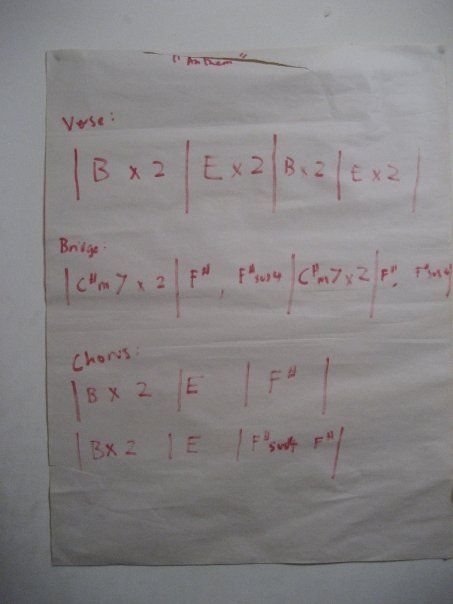 "Anthem"
Verse:
| B x 2 | E x 2 | B x 2 | E x 2 |
Bridge:
| C#m7 x 2 | F#, F#sus4 | C#m7 x 2 | F#, F#sus4 |
Chorus:
| B x 2 | E | F# |
| B x 2 | E | F#sus4 F# |